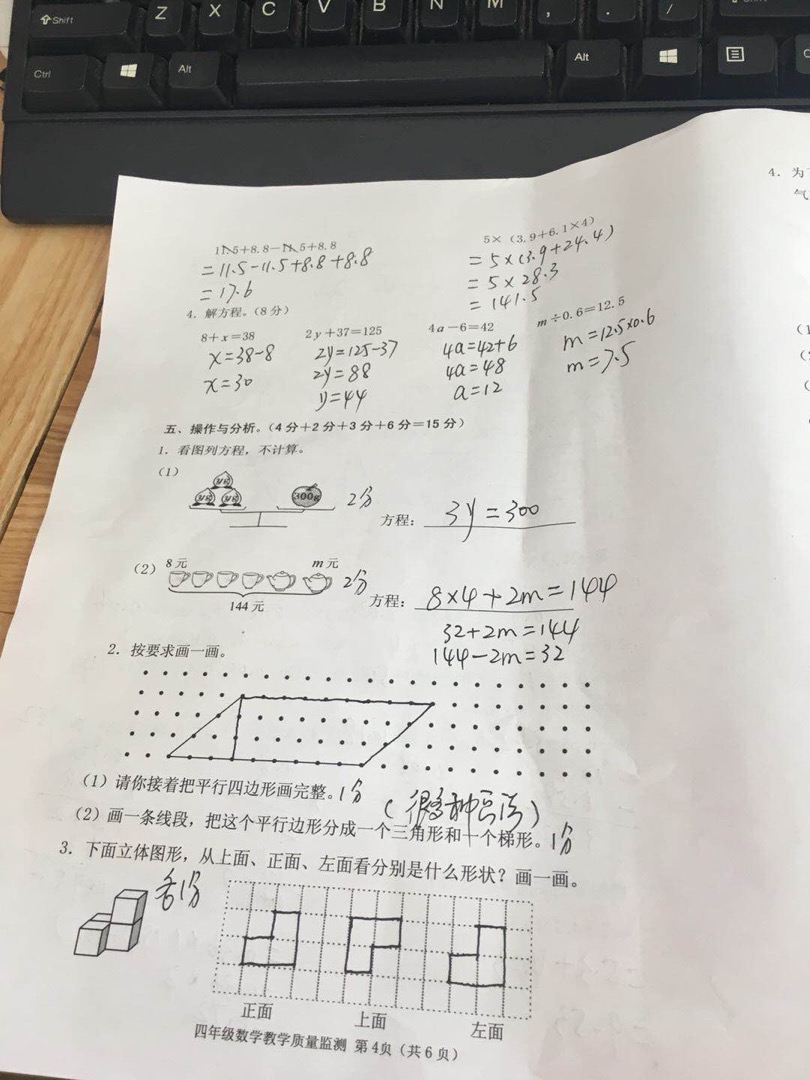 Shift
Z
X
C
V
B
N
M
Ctrl
Alt
Alt
4. 为
气
11.5+8.8-11.5+8.8
=11.5-11.5+8.8+8.8
=17.6
5×(3.9+6.1×4)
=5×(3.9+24.4)
=5×28.3
=141.5
4. 解方程。(8分)
8+x=38 2y+37=125 4a-6=42 m÷0.6=12.5
x=38-8 2y=125-37 4a=42+6 m=12.5×0.6
x=30 2y=88 4a=48 m=7.5
y=44 a=12
五、操作与分析。(4分+2分+3分+6分=15分)
1. 看图列方程,不计算。
(1)
300g 2分 方程: 3y=300
(2) 8元 m元
2分 方程: 8×4+2m=144
144元
32+2m=144
144-2m=32
2. 按要求画一画。
(1) 请你接着把平行四边形画完整。1分 (很多种画法)
(2) 画一条线段,把这个平行边形分成一个三角形和一个梯形。1分
3. 下面立体图形,从上面、正面、左面看分别是什么形状?画一画。
各1分
正面 上面 左面
四年级数学教学质量监测 第4页(共6页)